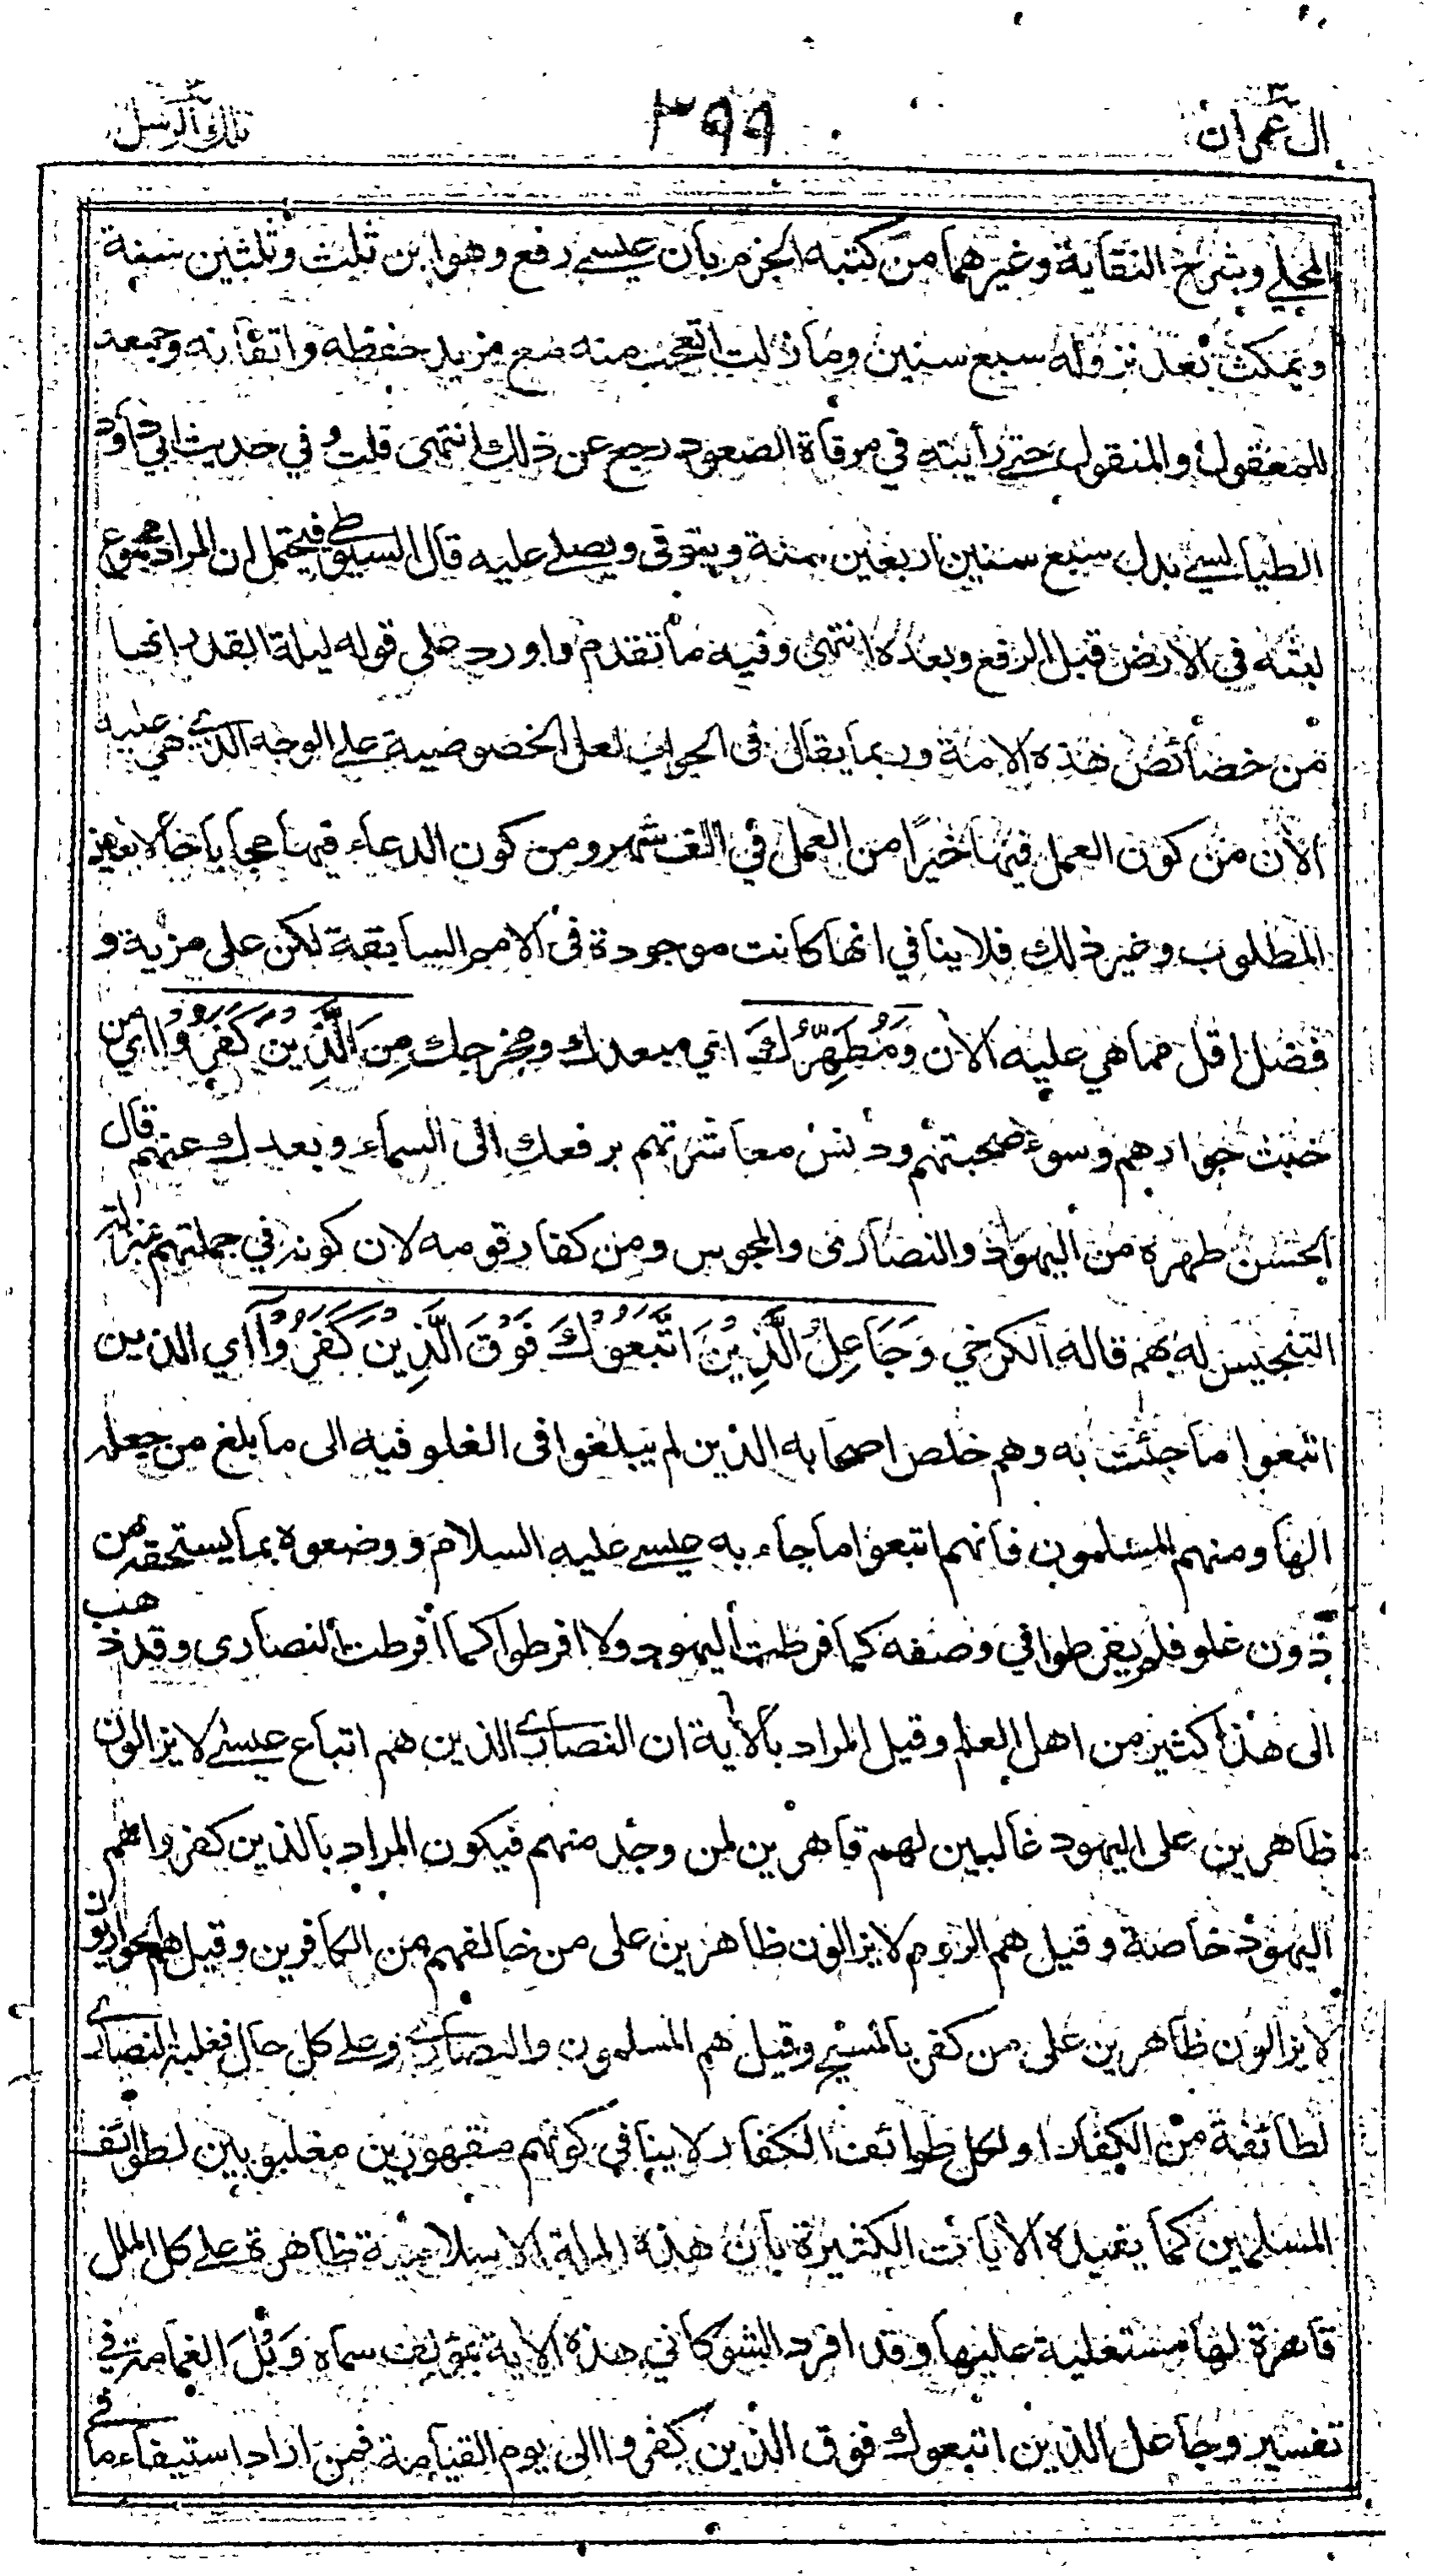 ال عمران ٣
٣٩٩
تلك الرسل ٣
المحلي وشرح النقاية وغيرهما من كتبه الجزم بأن عيسى رفع وهو ابن ثلث وثلثين سنة
ويمكث بعد نزوله سبع سنين وما زلت اتعجب منه مع مزيد حفظه واتقانه وجمعه
للمعقول والمنقول حتى رأيته في مرقاة الصعود رجع عن ذلك انتهى قلت وفي حديث ابي داود
الطيالسي بدل سبع سنين اربعين سنة ويتوفى ويصلى عليه قال السيوطي فيحتمل ان المراد مجموع
لبثه في الارض قبل الرفع وبعده انتهى وفيه ما تقدم واورد على قوله ليلة القدر انها
من خصائص هذه الامة وربما يقال في الجواب لعل الخصوصية على الوجه الذي هي عليه
الأن من كون العمل فيها خيرا من العمل في الف شهر ومن كون الدعاء فيها مجابا حالا بعين
المطلوب وغير ذلك فلا ينافي انها كانت موجودة في الامم السابقة لكن على مزية و
فضل اقل مما هي عليه الأن وَمُطَهِّرُكَ اي مبعدك ومخرجك مِنَ الَّذِينَ كَفَرُوا اي من
خبث جوارهم وسوء صحبتهم ودنس معاشرتهم برفعك الى السماء وبعدك عنهم قال
الحسن طهره من اليهود والنصارى والمجوس ومن كفار قومه لان كونه في جملتهم بمنزلة
التنجيس له بهم قاله الكرخي وَجَاعِلُ الَّذِينَ اتَّبَعُوكَ فَوْقَ الَّذِينَ كَفَرُوا اي الذين
اتبعوا ما جئت به وهم خلص اصحابه الذين لم يبلغوا في الغلو فيه الى ما بلغ من جعله
الها ومنهم المسلمون فانهم اتبعوا ما جاء به عيسى عليه السلام ووصفوه بما يستحقه من
دون غلو فلم يفرطوا في وصفه كما فرطت اليهود ولا افرطوا كما افرطت النصارى وقد ذهب
الى هذا كثير من اهل العلم وقيل المراد بالأية ان النصارى الذين هم اتباع عيسى لا يزالون
ظاهرين على اليهود غالبين لهم قاهرين لمن وجد منهم فيكون المراد بالذين كفروا هم
اليهود خاصة وقيل هم الروم لا يزالون ظاهرين على من خالفهم من الكافرين وقيل هم الحواريون
لا يزالون ظاهرين على من كفر بالمسيح وقيل هم المسلمون والنصارى وعلى كل حال فغلبة النصارى
لطائفة من الكفار او لكل طوائف الكفار لا ينافي كونهم مقهورين مغلوبين لطوائف
المسلمين كما يفيده الأيات الكثيرة بأن هذه الملة الاسلامية ظاهرة على كل الملل
قاهرة لها مستعلية عليها وقد افرد الشوكاني هذه الأية بمؤلف سماه وَبْلَ الغمامة في
تفسير وجاعل الذين اتبعوك فوق الذين كفروا الى يوم القيامة فمن اراد استيفاء ما في